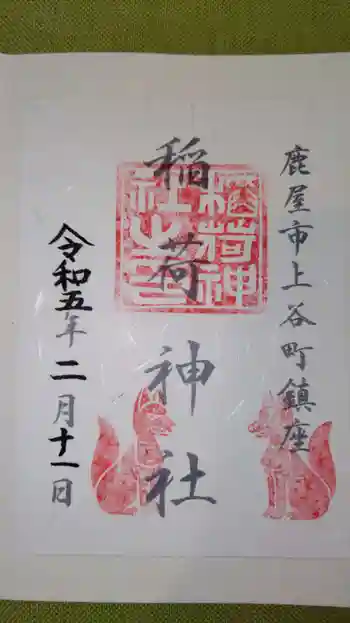 鹿屋市上谷町鎮座
稲荷神社
稲荷神社之印
令和五年二月十一日